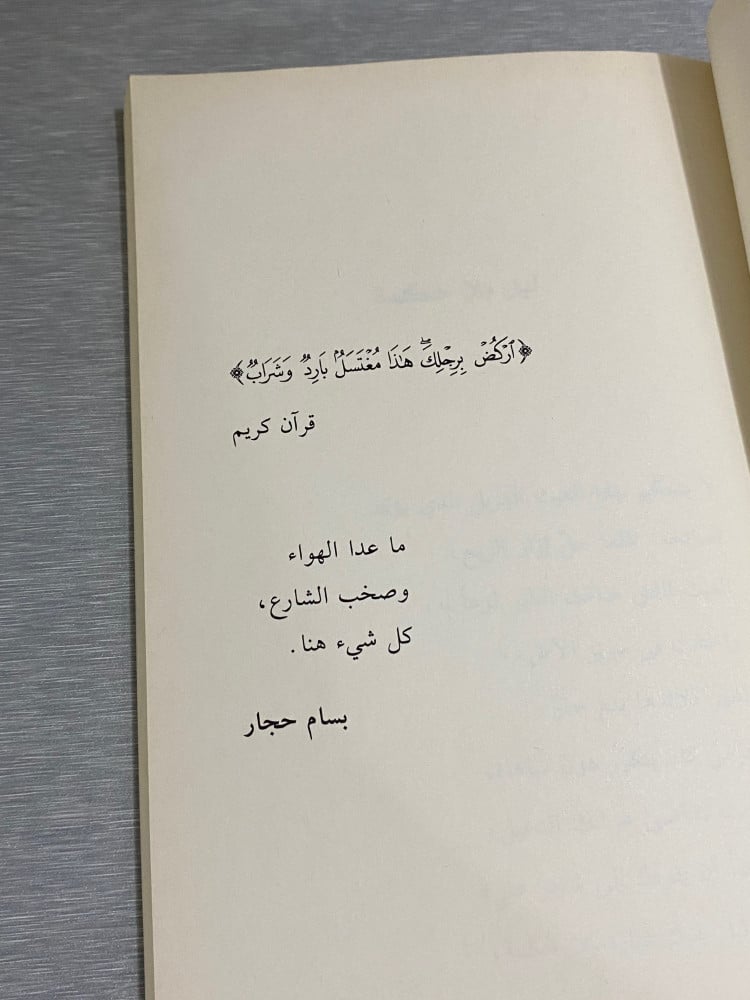 ﴿ٱرْكُضْ بِرِجْلِكَۖ هَٰذَا مُغْتَسَلُۢ بَارِدٌ وَشَرَابٌ﴾
قرآن كريم
ما عدا الهواء
وصخب الشارع،
كل شيء هنا.
بسام حجار